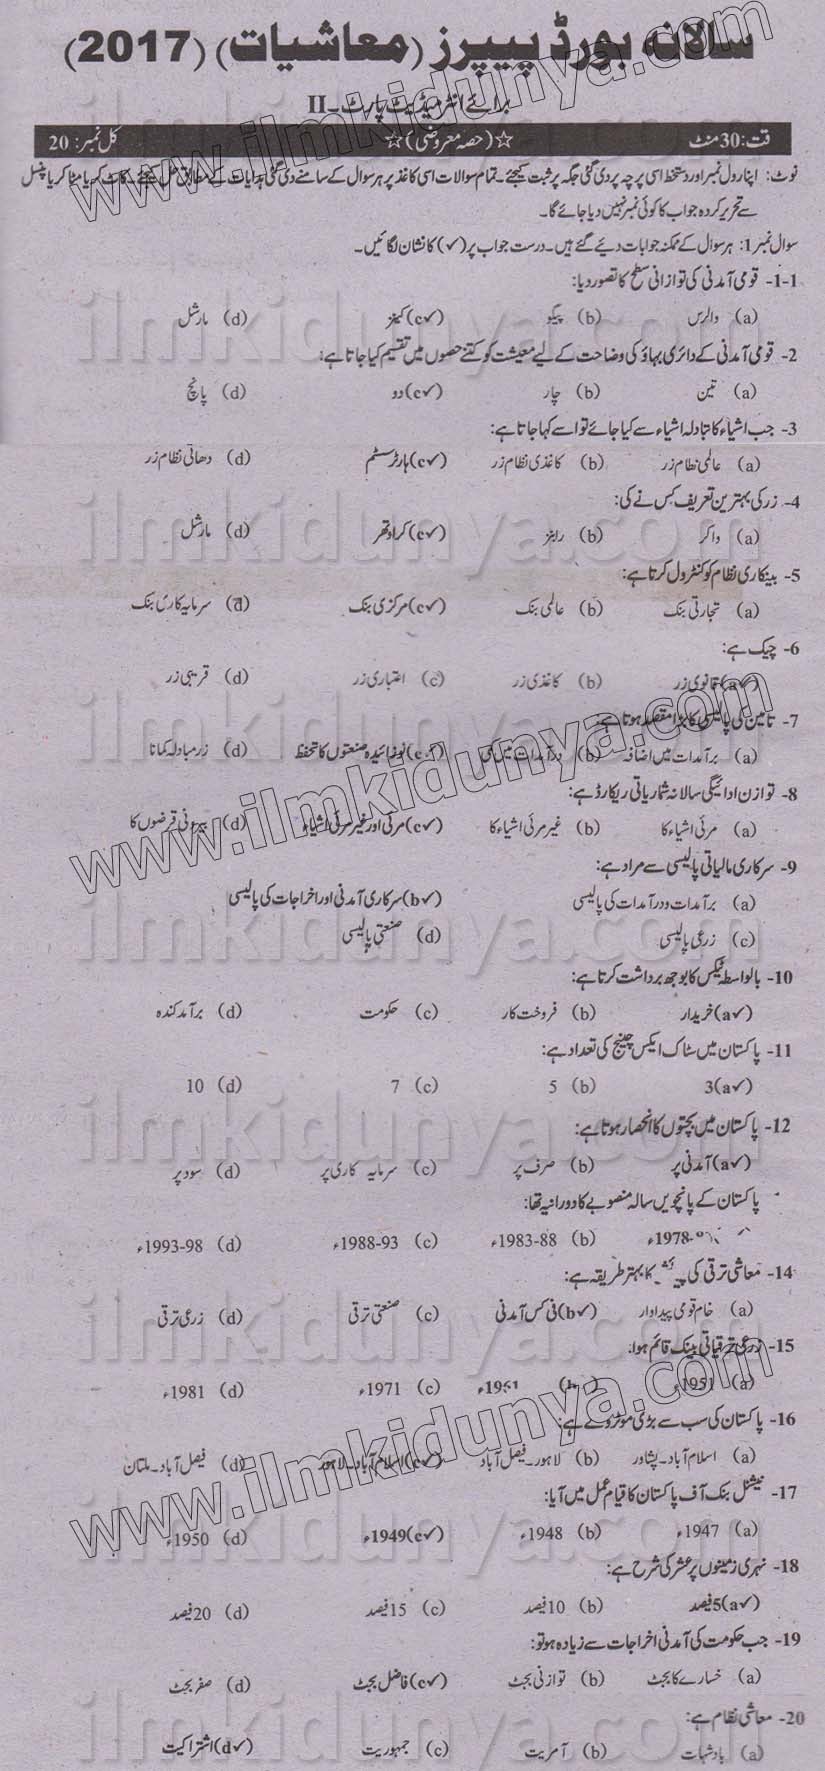 سالانہ بورڈ پیپرز (معاشیات) (2017)
برائے انٹرمیڈیٹ پارٹ۔II
وقت: 30 منٹ ☆(حصہ معروضی)☆ کل نمبر: 20
نوٹ: اپنا رول نمبر اور دستخط اسی پرچہ پر دی گئی جگہ پر ثبت کیجئے۔ تمام سوالات اسی کاغذ پر ہر سوال کے سامنے دی گئی ہدایات کے مطابق حل کیجئے۔ کاٹ کر یا مٹا کر یا پنسل
سے تحریر کردہ جواب کا کوئی نمبر نہیں دیا جائے گا۔
سوال نمبر 1: ہر سوال کے ممکنہ جوابات دیئے گئے ہیں۔ درست جواب پر (✓) کا نشان لگائیں۔
1-1- قومی آمدنی کی توازنی سطح کا تصور دیا:
(a) والرس (b) پیگو (c✓) کینز (d) مارشل
2- قومی آمدنی کے دائری بہاؤ کی وضاحت کے لیے معیشت کو کتنے حصوں میں تقسیم کیا جاتا ہے:
(a) تین (b) چار (c✓) دو (d) پانچ
3- جب اشیاء کا تبادلہ اشیاء سے کیا جائے تو اسے کہا جاتا ہے:
(a) عالمی نظام زر (b) کاغذی نظام زر (c✓) بارٹر سسٹم (d) دھاتی نظام زر
4- زر کی بہترین تعریف کس نے کی:
(a) واکر (b) رابنز (c✓) کراوتھر (d) مارشل
5- بینکاری نظام کو کنٹرول کرتا ہے:
(a) تجارتی بنک (b) عالمی بنک (c✓) مرکزی بنک (d) سرمایہ کاری بنک
6- چیک ہے:
(a✓) قانونی زر (b) کاغذی زر (c) اعتباری زر (d) قریبی زر
7- تامین کی پالیسی کا بڑا مقصد ہوتا ہے:
(a) برآمدات میں اضافہ (b) درآمدات میں کمی (c✓) نوزائیدہ صنعتوں کا تحفظ (d) زرمبادلہ کمانا
8- توازن ادائیگی سالانہ شماریاتی ریکارڈ ہے:
(a) مرئی اشیاء کا (b) غیر مرئی اشیاء کا (c✓) مرئی اور غیر مرئی اشیاء (d) بیرونی قرضوں کا
9- سرکاری مالیاتی پالیسی سے مراد ہے:
(a) برآمدات و درآمدات کی پالیسی (b✓) سرکاری آمدنی اور اخراجات کی پالیسی
(c) زرعی پالیسی (d) صنعتی پالیسی
10- بالواسطہ ٹیکس کا بوجھ برداشت کرتا ہے:
(a✓) خریدار (b) فروخت کار (c) حکومت (d) برآمد کنندہ
11- پاکستان میں سٹاک ایکس چینج کی تعداد ہے:
(a✓) 3 (b) 5 (c) 7 (d) 10
12- پاکستان میں بچتوں کا انحصار ہوتا ہے:
(a✓) آمدنی پر (b) صرف پر (c) سرمایہ کاری پر (d) سود پر
پاکستان کے پانچویں سالہ منصوبے کا دورانیہ تھا:
1978- ء (b) 1983-88ء (c) 1988-93ء (d) 1993-98ء
14- معاشی ترقی کی کا بہتر طریقہ ہے:
(a) خام قومی پیداوار (b✓) فی کس آمدنی (c) صنعتی ترقی (d) زرعی ترقی
15- زرعی ترقیاتی بینک قائم ہوا:
(a) 1951ء (b) 1961ء (c) 1971ء (d) 1981ء
16- پاکستان کی سب سے بڑی موٹروے ہے:
(a) اسلام آباد۔پشاور (b) لاہور۔فیصل آباد (c✓) اسلام آباد۔لاہور (d) فیصل آباد۔ملتان
17- نیشنل بنک آف پاکستان کا قیام عمل میں آیا:
(a) 1947ء (b) 1948ء (c✓) 1949ء (d) 1950ء
18- نہری زمینوں پر عشر کی شرح ہے:
(a✓) 5 فیصد (b) 10 فیصد (c) 15 فیصد (d) 20 فیصد
19- جب حکومت کی آمدنی اخراجات سے زیادہ ہو تو:
(a) خسارے کا بجٹ (b) توازنی بجٹ (c✓) فاضل بجٹ (d) صفر بجٹ
20- معاشی نظام ہے:
(a) بادشہات (b) آمریت (c) جمہوریت (d✓) اشتراکیت
www.ilmkidunya.com
ilmkidunya.com
ilmkidunya.com
www.ilmkidunya.com
ilmkidunya.com
ilmkidunya.com
ilmkidunya.com
www.ilmkidunya.com
ilmkidunya.com
ilmkidunya.com